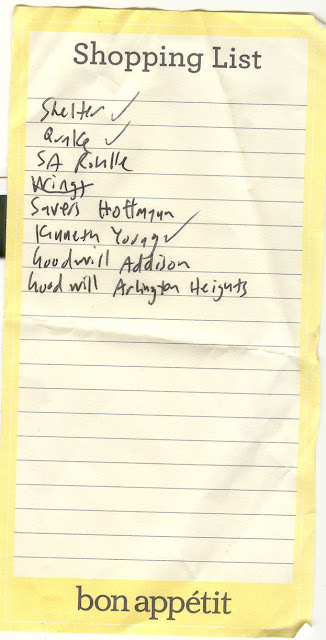 Shopping List
Shelter ✓
Quake ✓
SA Roselle
Wings
Savers Hoffman
Kenneth Young ✓
Goodwill Addison
Goodwill Arlington Heights
bon appétit